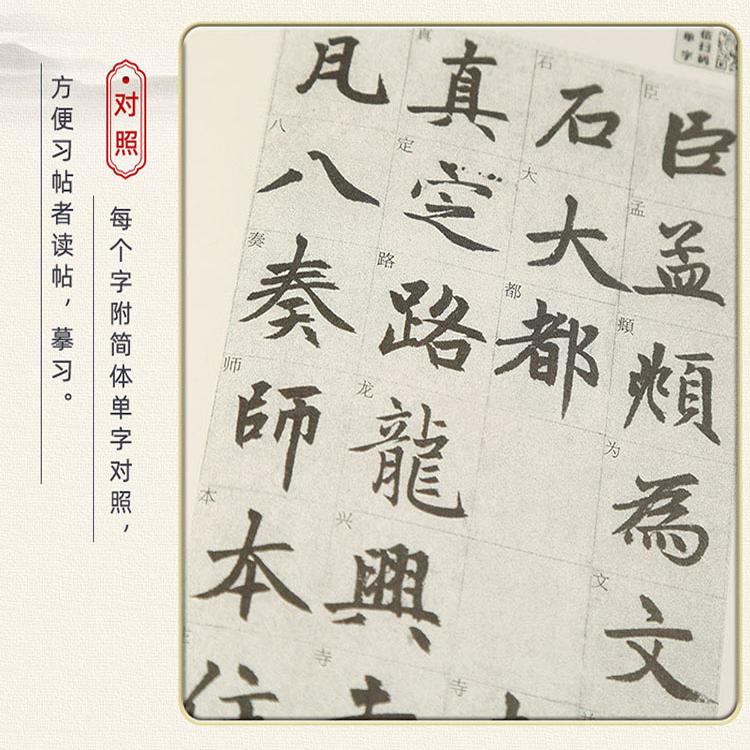 对照
每个字附简体单字对照，
方便习帖者读帖，摹习。
信扫码
单字
臣孟頫为文
臣孟頫為文
石大都寺
石大都
真定路龙兴寺
真定路龍興
八奏师本
凡八奏師本住